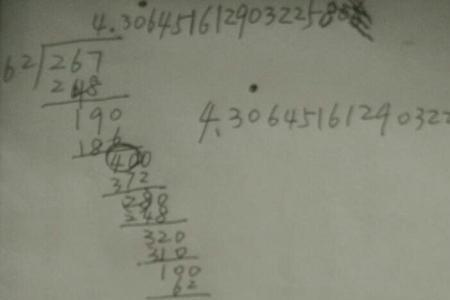 4.3064516129032258
62 267
248
190
186
400
372
280
248
320
310
190
62
4.30645161290322